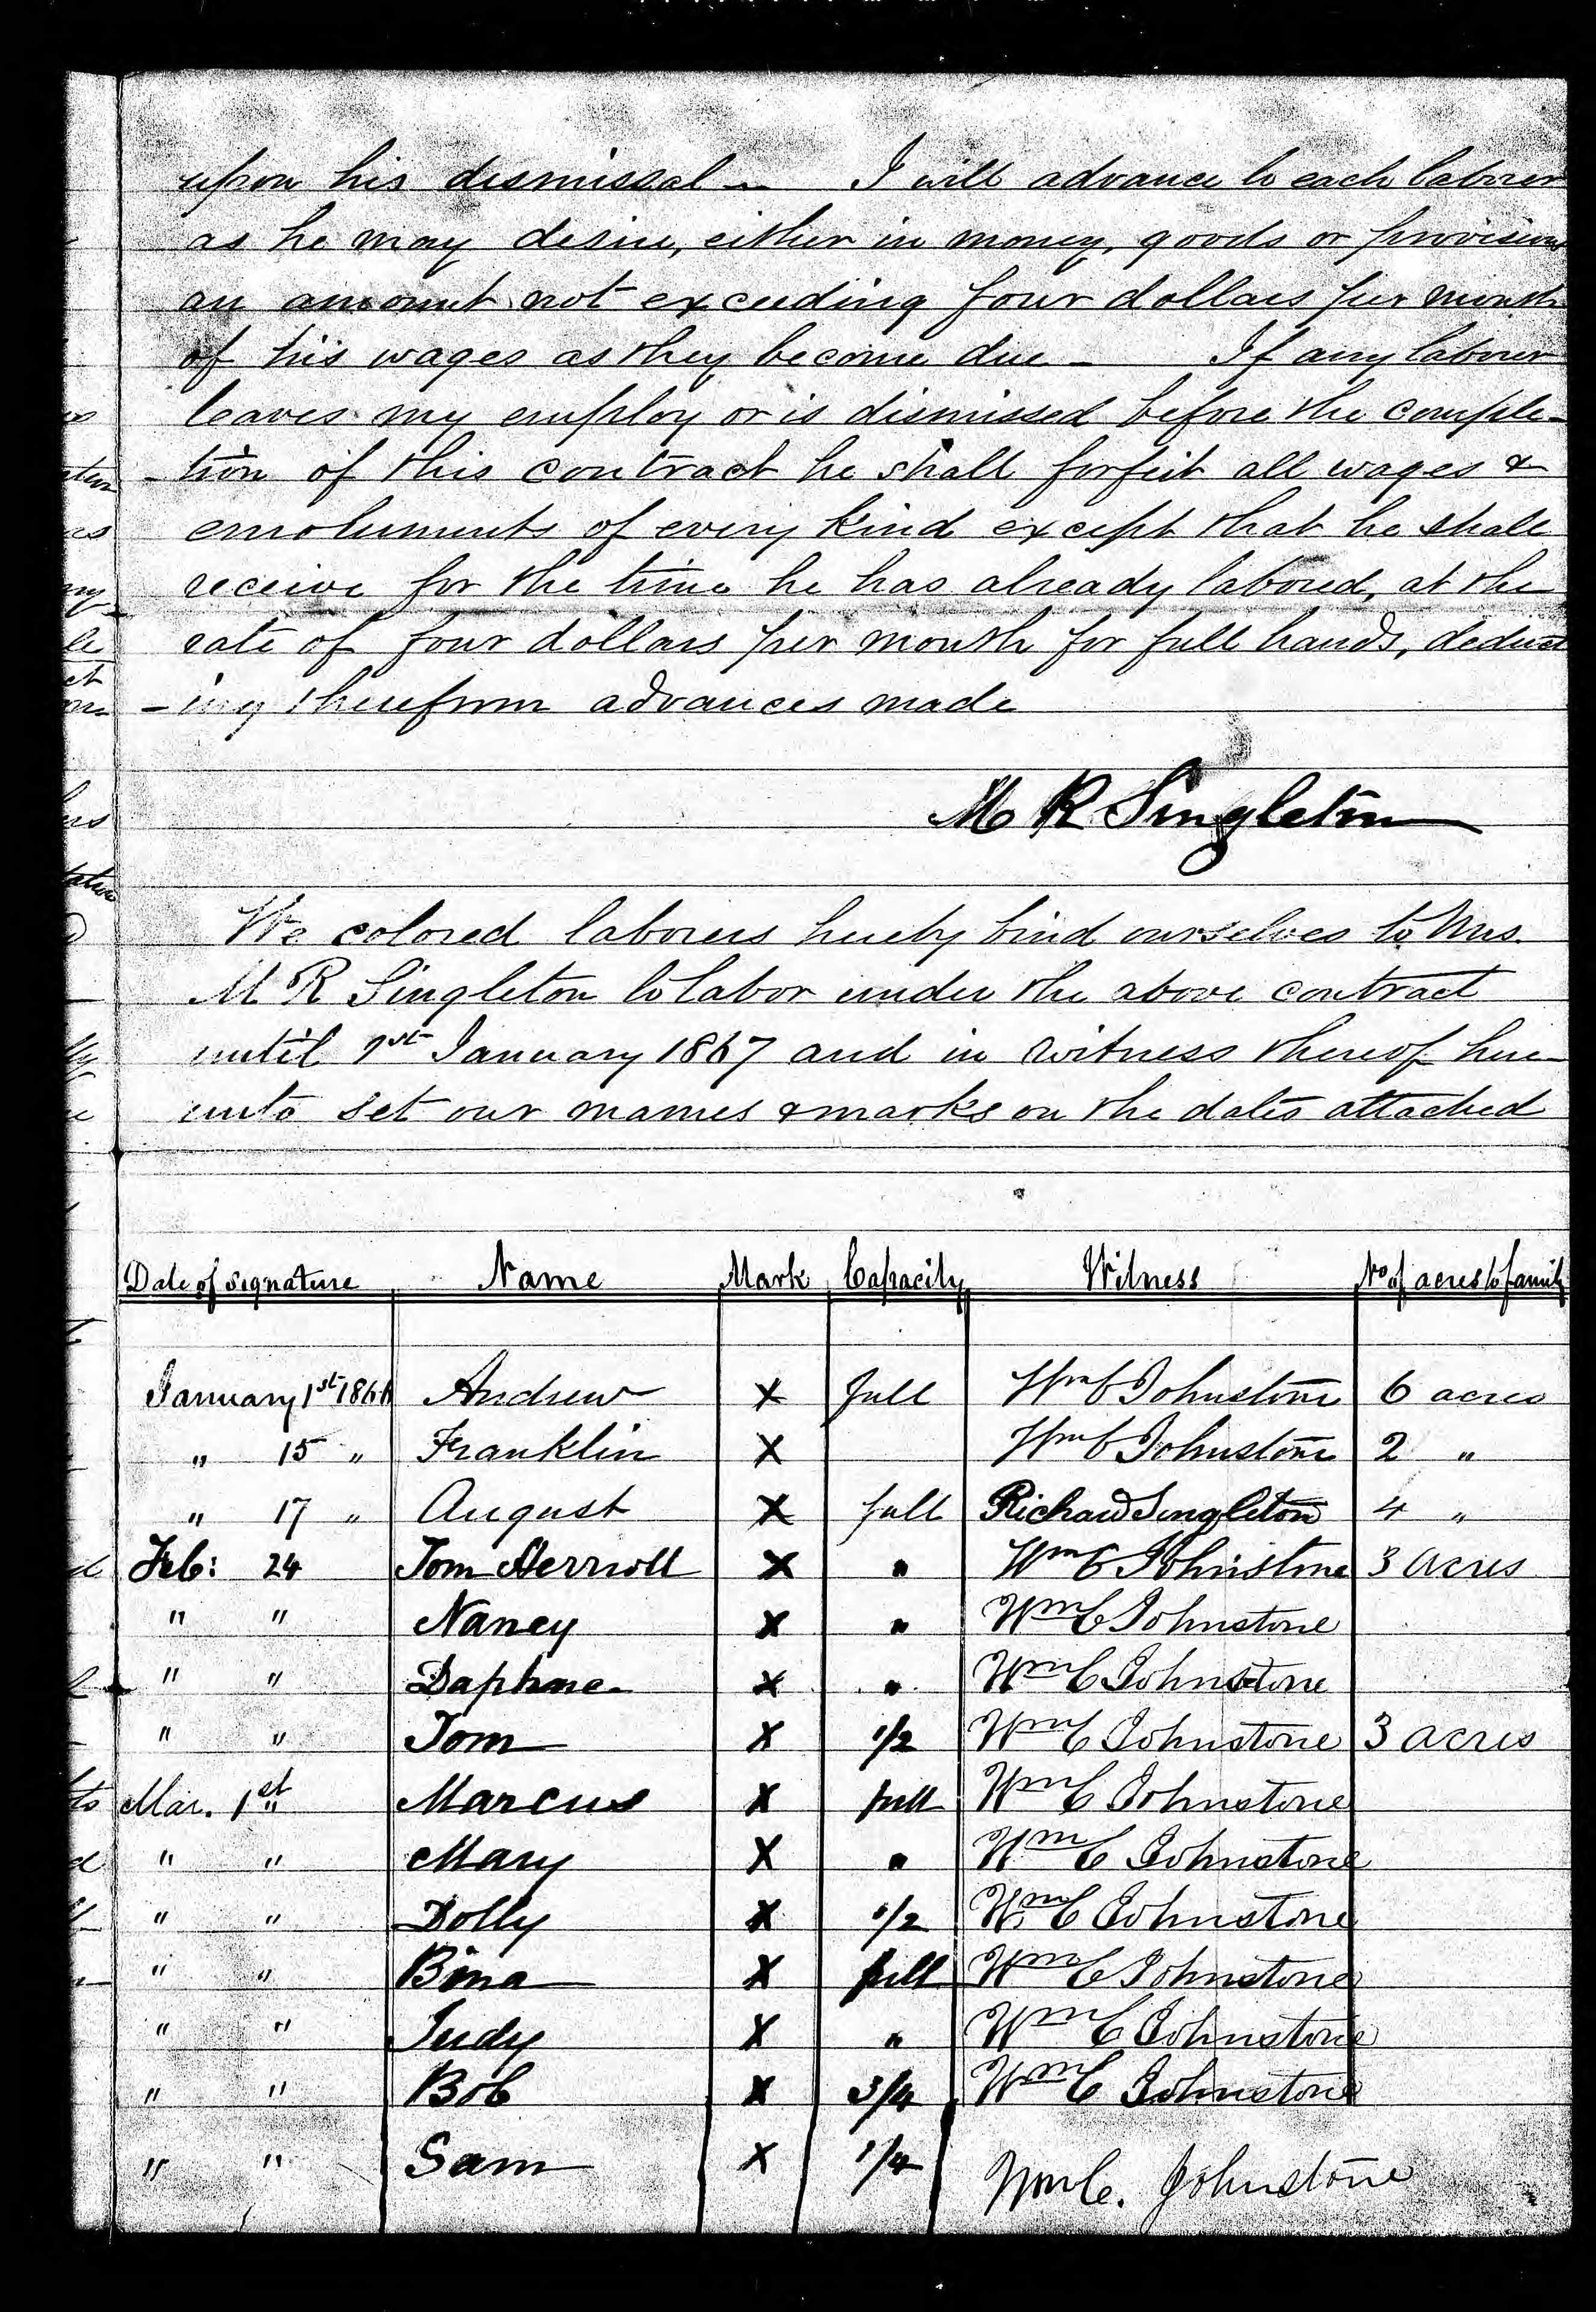 upon his dismissal — I will advance to each laborer
as he may desire, either in money, goods or provisions
an amount not exceeding four dollars per month
of his wages as they become due — If any laborer
leaves my employ or is dismissed before the comple-
-tion of this contract he shall forfeit all wages &
emoluments of every kind except that he shall
receive for the time he has already labored, at the
rate of four dollars per month for full hands, deduct
-ing therefrom advances made
M R Singleton
We colored laborers hereby bind ourselves to Mrs.
M R Singleton to labor under the above contract
until 1st January 1867 and in witness thereof here-
unto set our names & marks on the dates attached
Date of signature Name Mark Capacity Witness No of acres to family
January 1st 1866 Andrew X full Wm C Johnstone 6 acres
" 15 " Franklin X Wm C Johnstone 2 "
" 17 " August X full Richard Singleton 4 "
Feb: 24 Tom X " Wm C Johnstone 3 acres
" " Nancy X " Wm C Johnstone
" " Daphne X " Wm C Johnstone
" " Tom X 1/2 Wm C Johnstone 3 acres
Mar. 1st " Marcus X full Wm C Johnstone
" " Mary X " Wm C Johnstone
" " Dolly X 1/2 Wm C Johnstone
" " Bina X full Wm C Johnstone
" " Judy X " Wm C Johnstone
" " Bob X 3/4 Wm C Johnstone
" " Sam X 1/4 Wm C. Johnstone